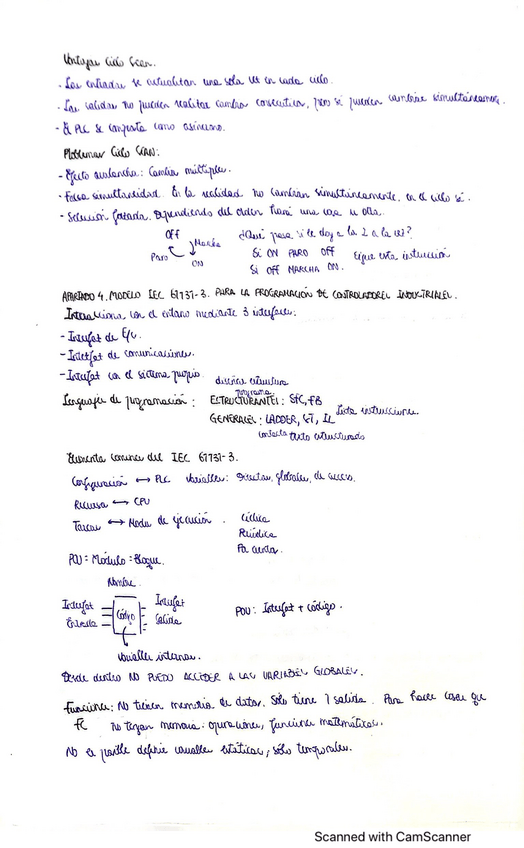 Ventajas Ciclo Scan.
- Las entradas se actualizan una sola vez en cada ciclo.
- Las salidas no pueden realizar cambios consecutivos, pero sí pueden cambiar simultáneamente.
- El PLC se comporta como asíncrono.
Problemas Ciclo SCAN:
- Efecto avalancha: Cambia múltiples.
- Falsa simultaneidad. En la realidad no cambian simultáneamente, en el ciclo sí.
- Selección forzada. Dependiendo del orden hará una cosa u otra.
OFF
Paro Marcha
ON
¿Qué pasa si le doy a la 2 a la vez?
Si ON PARO OFF
Si OFF MARCHA ON.
Sigue esta instrucción
APARTADO 4. MODELO IEC 61131-3. PARA LA PROGRAMACIÓN DE CONTROLADORES INDUSTRIALES.
Interacciona con el entorno mediante 3 interfaces:
- Interfaz de E/S.
- Interfaz de comunicaciones.
- Interfaz con el sistema propio.
diseñar estructura
programa
Lenguajes de programación: ESTRUCTURANTES: SFC, FB
GENERALES: LADDER, ST, IL Lista instrucciones
contactos texto estructurado
Elementos comunes del IEC 61131-3.
Configuración ↔ PLC Variables: Directas, globales, de acceso.
Recurso ↔ CPU
Tareas ↔ Modo de ejecución. Cíclica
Periódica
Por evento.
POU = Módulo = Bloque.
Nombre
Interfaz Entrada
Código
Interfaz Salida
POU: Interfaz + código.
Variables internas.
Desde dentro NO PUEDO ACCEDER A LAS VARIABLES GLOBALES.
Funciones: No tienen memoria de datos. Sólo tiene 1 salida. Para hacer cosas que
FC no tengan memoria: operaciones, funciones matemáticas.
No es posible definir variables estáticas, sólo temporales.
Scanned with CamScanner